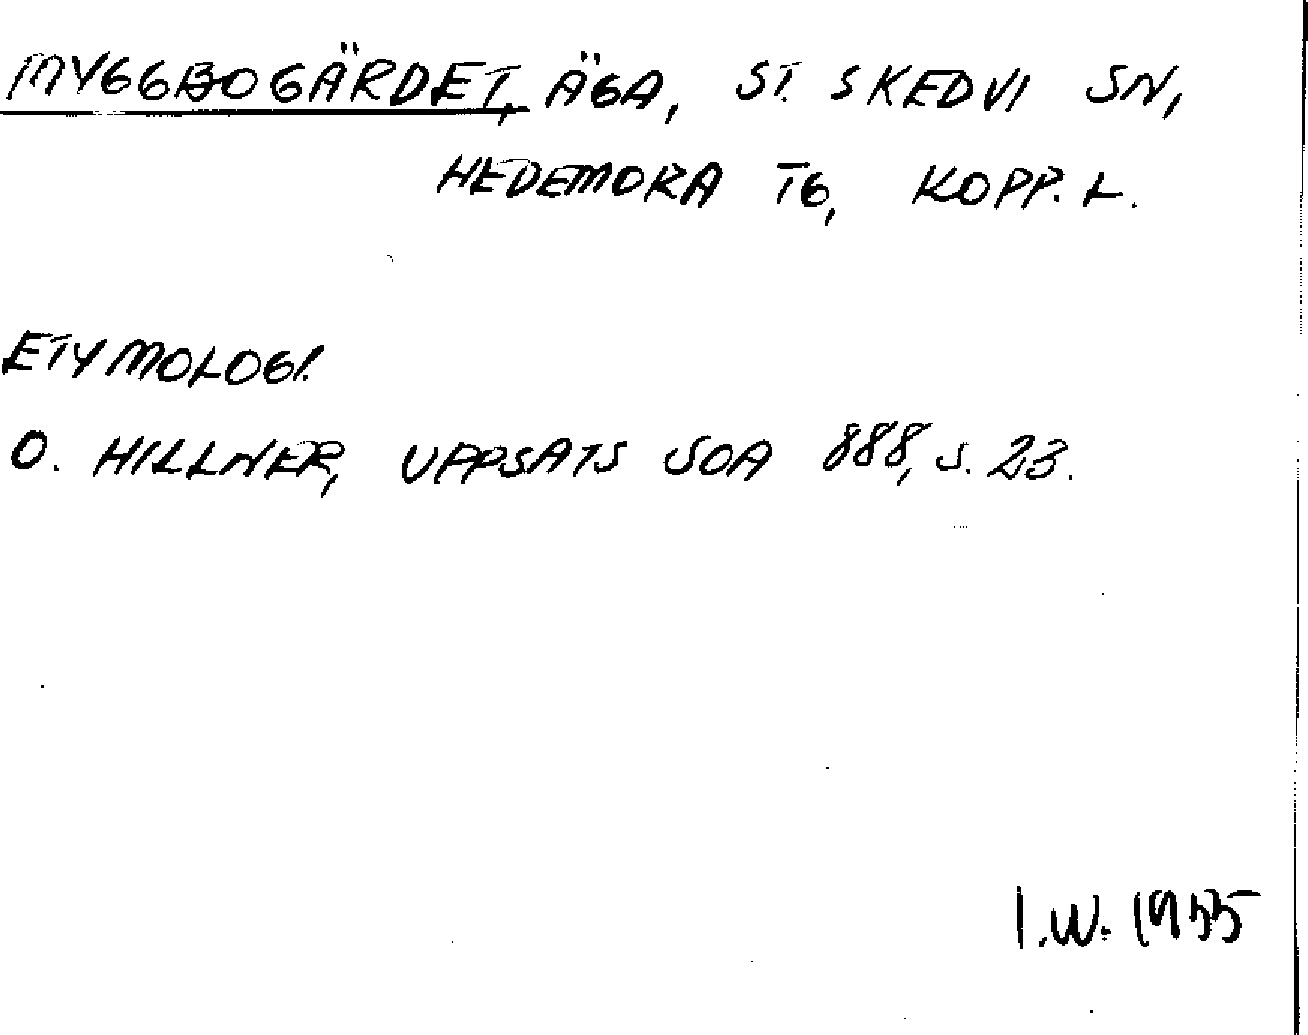 MYGGBOGÄRDET, ÄGA, ST. SKEDVI SN,
HEDEMORA TG, KOPP. L.
ETYMOLOGI.
O. HILLNER, UPPSATS SOA 888, S. 23.
I.W. 1955